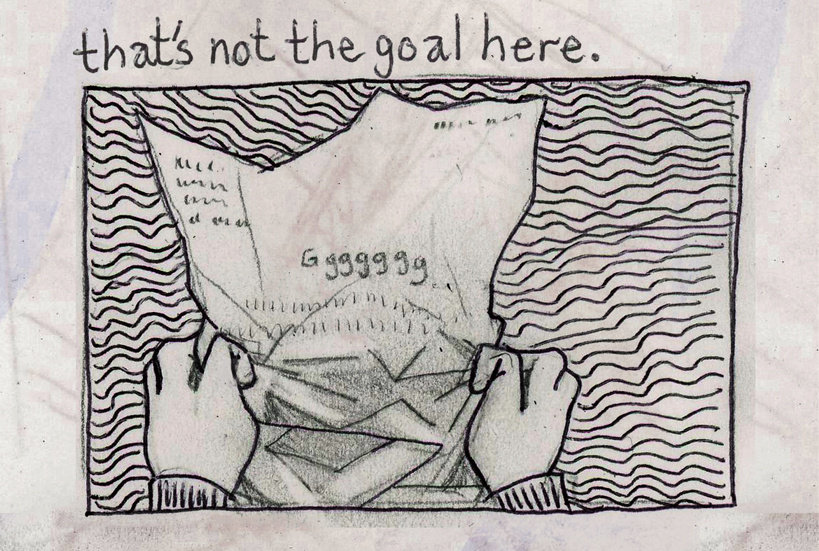 that's not the goal here.
Ggggggg